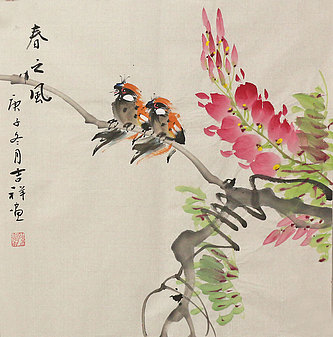 春之风
庚子冬月吉祥画